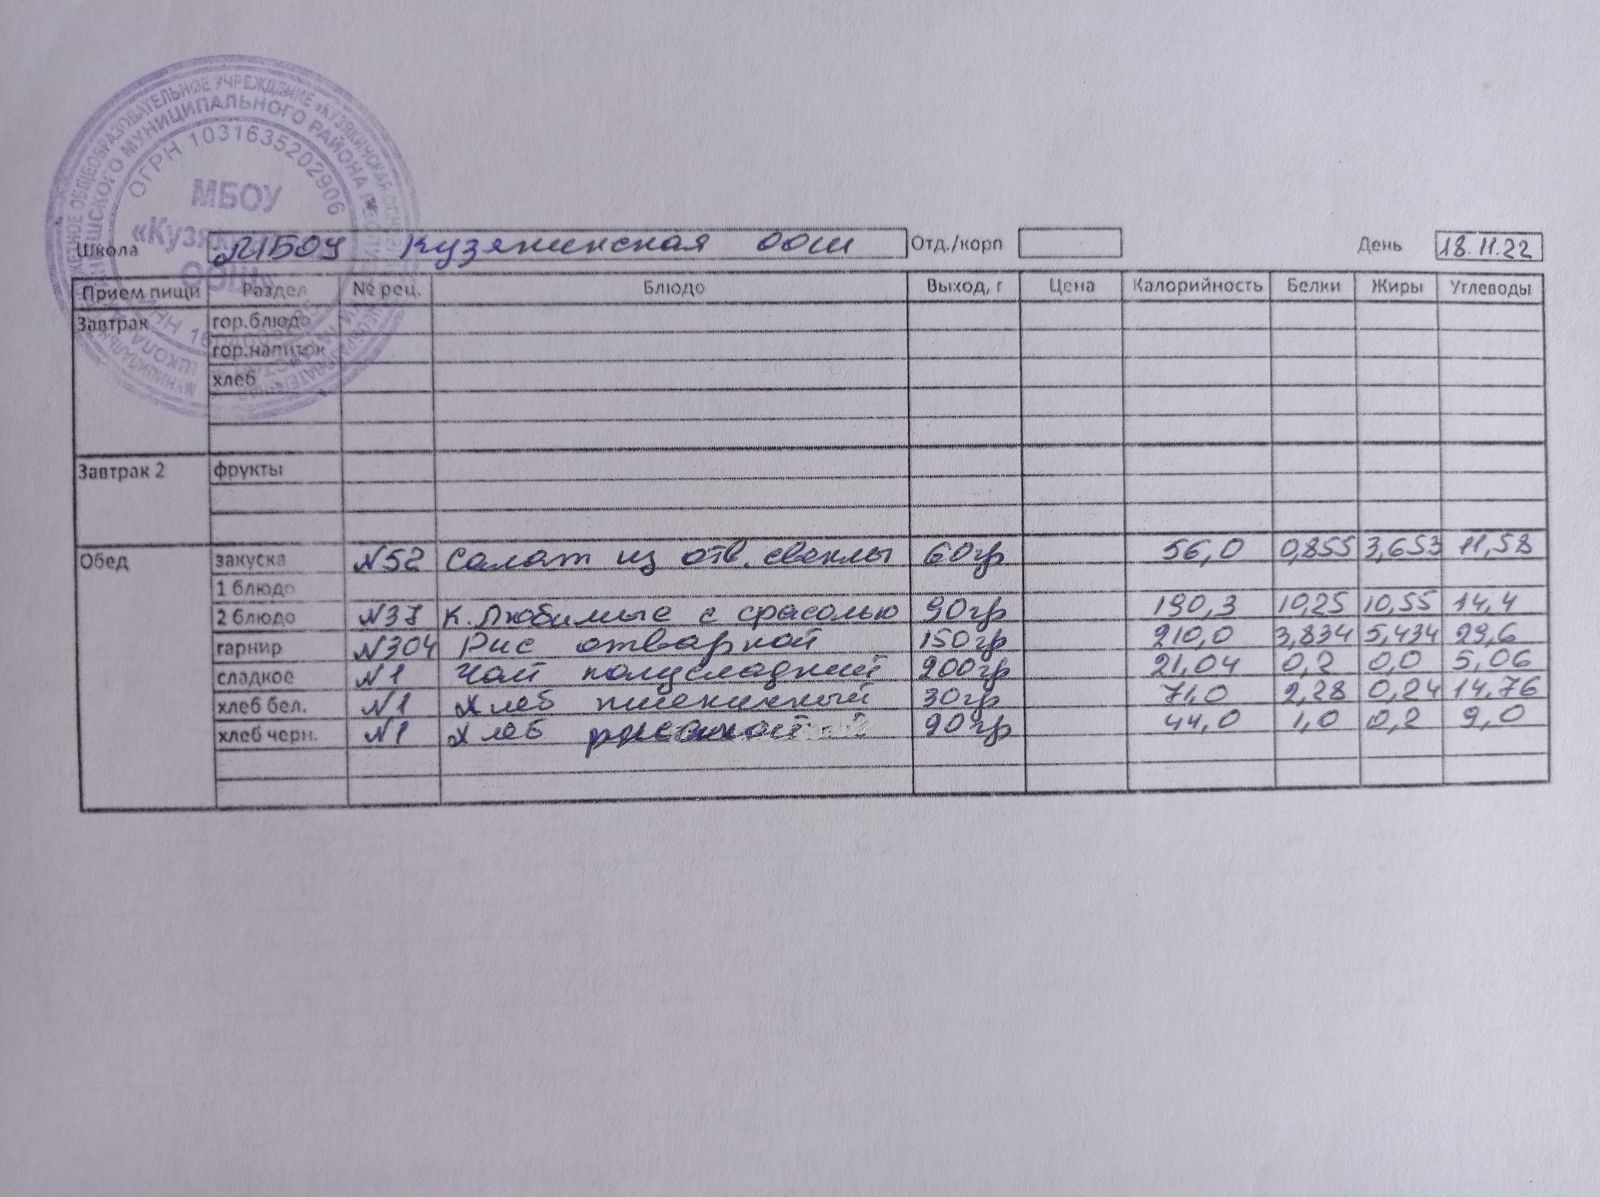 МБОУ
«Кузякинская
ООШ»
ОГРН 1031635202906
Школа МБОУ Кузякинская ООШ Отд./корп День 18.11.22
Прием пищи Раздел № рец. Блюдо Выход, г Цена Калорийность Белки Жиры Углеводы
Завтрак гор.блюдо
гор.напиток
хлеб
Завтрак 2 фрукты
Обед закуска №52 Салат из отв. свеклы 60гр 56,0 0,855 3,653 11,58
1 блюдо
2 блюдо №37 К. Любимые с фасолью 90гр 190,3 10,25 10,55 14,4
гарнир №304 Рис отварной 150гр 210,0 3,834 5,434 29,6
сладкое №1 Чай полусладкий 200гр 21,04 0,2 0,0 5,06
хлеб бел. №1 Хлеб пшеничный 30гр 71,0 2,28 0,24 14,76
хлеб черн. №1 Хлеб ржаной 44,0 1,0 0,2 9,0